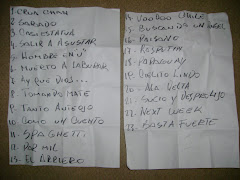 1. CRUA CHAN
2. SABADO
3. CASI ESTATUA
4. SALIR A ASUSTAR
5. HOMBRE EN U
6. MUERTO A LABURAR
7. AY QUE DIOS...
8. TOMANDO MATE
9. TANTO ANTEOJO
10. COMO UN CUENTO
11. SPAGHETTI
12. POR MIL
13. EL ARRIERO
14. VOODOO CHILE
15. BUSCANDO UN ANGEL
16. PAISANO
17. RASPUTIN
18. PARAGUAY
19. CIELITO LINDO
20. ALA DELTA
21. SUCIO Y DESPROLIJO
22. NEXT WEEK
23. BASTA FUERTE